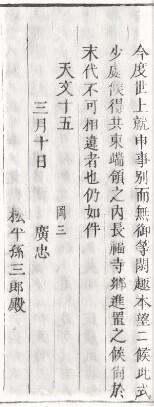 今度世上就申事別而無御等閑趣本望ニ候此式
少處候得共東端領之内長福寺郷進置之候尙於
末代不可相違者也仍如件
天文十五
三月十日
岡三
廣忠
松平孫三郎殿